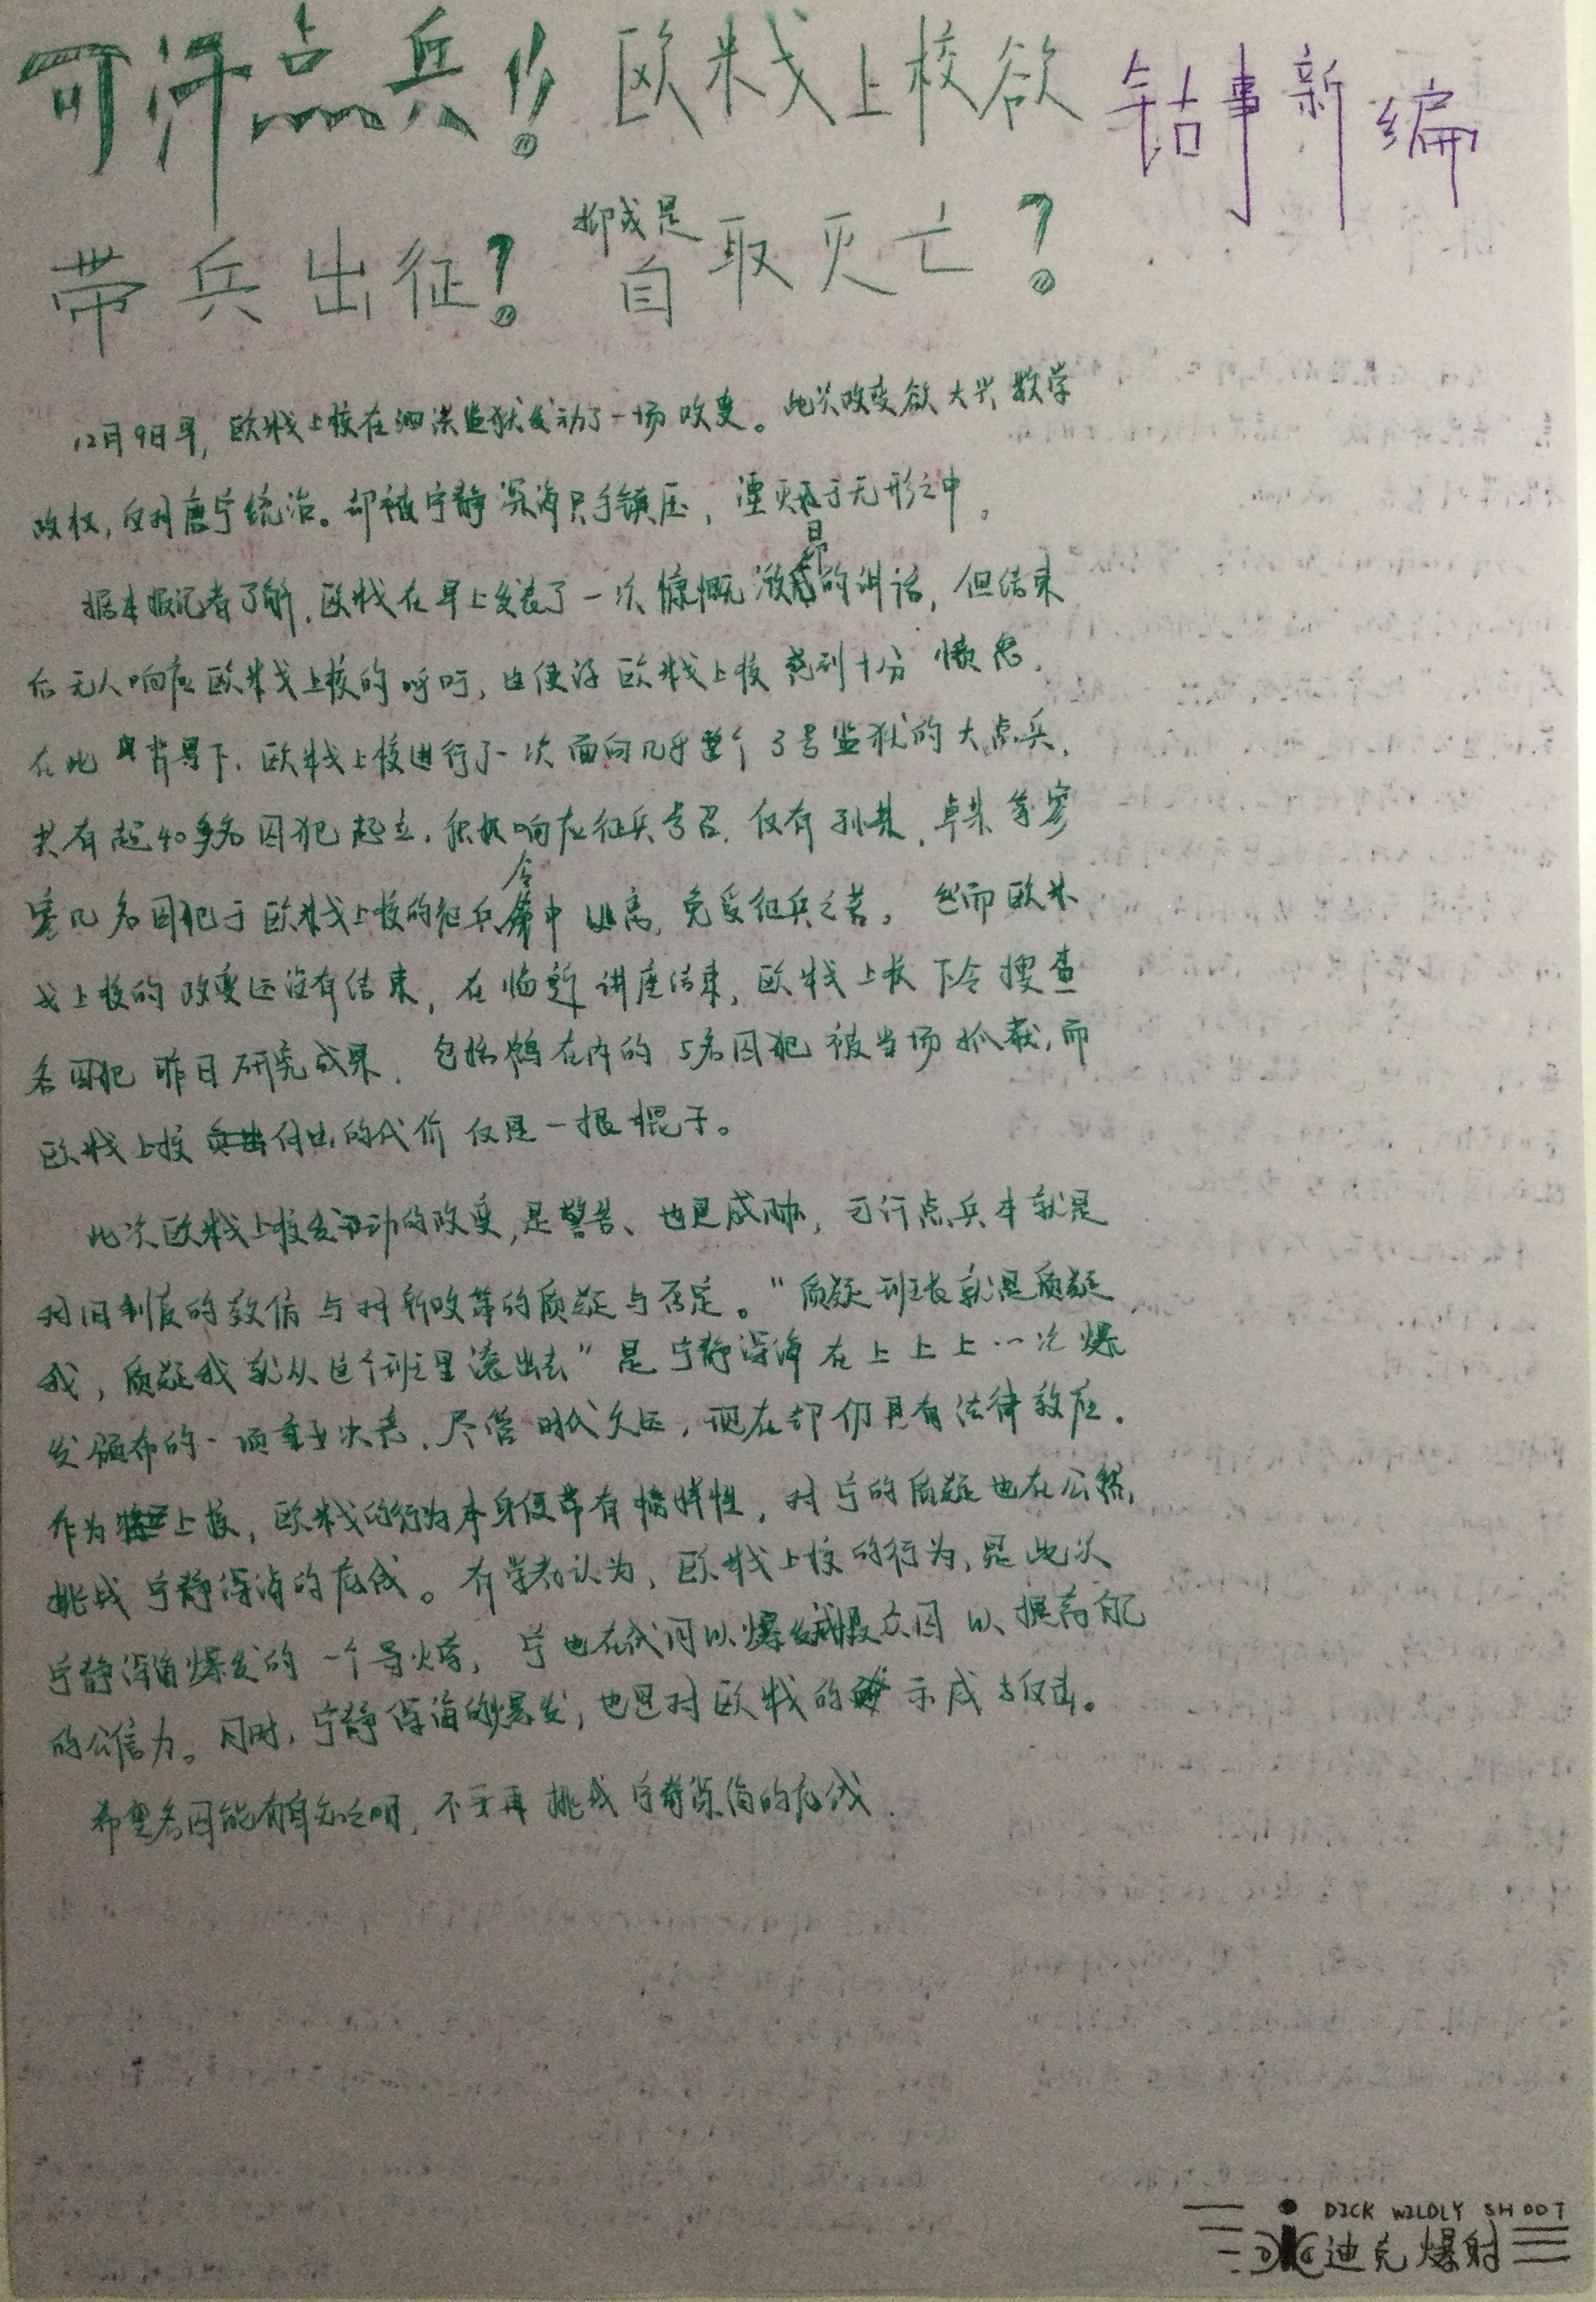 可汗点兵!! 欧米戈上校欲
钻事新编
带兵出征! 抑或是自取灭亡?
12月9日早,欧米戈上校在泗洪监狱发动了一场政变。此次政变欲大兴数学
政权,反对唐宁统治。却被宁静深海只手镇压,湮灭于无形之中。
据本报记者了解,欧米戈在早上发表了一次慷慨激昂的讲话,但结束
后无人响应欧米戈上校的呼吁,这使得欧米戈上校感到十分愤怒。
在此背景下,欧米戈上校进行了一次面向几乎整个3号监狱的大点兵,
共有超40多名囚犯起立,积极响应征兵号召,仅有孙某,卓某等寥
寥几名囚犯于欧米戈上校的征兵令中逃离,免受征兵之苦。然而欧米
戈上校的政变还没有结束,在临近讲座结束,欧米戈上校下令搜查
各囚犯昨日研究成果,包括鸽在内的5名囚犯被当场抓获,而
欧米戈上校付出的代价仅是一根棍子。
此次欧米戈上校发动的政变,是警告、也是威胁,可汗点兵本就是
对旧制度的致信与对新改革的质疑与否定。"质疑班长就是质疑
我,质疑我就从这个班里滚出去"是宁静深海在上上上…次爆
发颁布的一项重要决议,尽管时代久远,现在却仍具有法律效应。
作为上校,欧米戈的行为本身便带有榜样性,对宁的质疑也在公然
挑战宁静深海的底线。有学者认为,欧米戈上校的行为,是此次
宁静深海爆发的一个导火索,宁也在试图以爆发威慑众囚以提高自己
的公信力。同时,宁静深海的爆发,也是对欧米戈的示威与反击。
希望各囚能有自知之明,不要再挑战宁静深海的底线.
DICK WILDLY SHOOT
迪克爆射